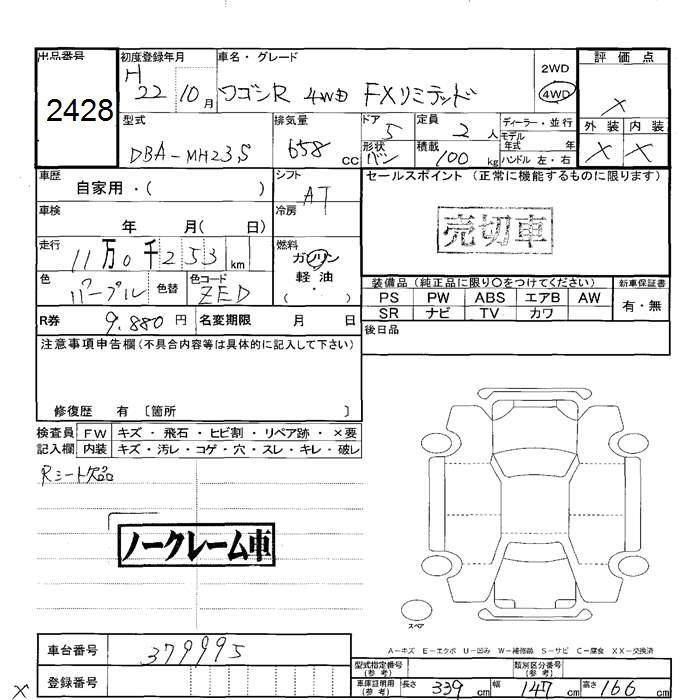 出品番号 初度登録年月 車名・グレード 評価点
2428 H 22 10月 ワゴンR 4WD FXリミテッド 2WD 4WD X
型式 排気量 ドア 定員 ディーラー・並行 外装 内装
DBA-MH23S 658cc 5 2人 モデル年式 年 X X
形状 バン 積載 100kg ハンドル 左・右
車歴 シフト セールスポイント (正常に機能するものに限ります)
自家用・( ) AT
車検 冷房 売切車
年 月( 日)
走行 燃料
11万0千253km ガソリン
軽油
・
色 色コード 装備品 (純正品に限り○をつけてください) 新車保証書
パープル 色替 ZED PS PW ABS エアB AW 有・無
R券 9,880円 名変期限 月 日 SR ナビ TV カワ
注意事項申告欄(不具合内容等は具体的に記入して下さい) 後日品
修復歴 有 〔箇所 〕
検査員 FW キズ・飛石・ヒビ割・リペア跡・×要
記入欄 内装 キズ・汚レ・コゲ・穴・スレ・キレ・破レ
Rシート欠品
ノークレーム車
スペア
A-キズ E-エクボ U-凹み W-補修跡 S-サビ C-腐食 XX-交換済
車台番号 379995 型式指定番号(参考) 類別区分番号(参考)
X 登録番号 車庫証明用(参考) 長さ 339cm 幅 147cm 高さ 166cm